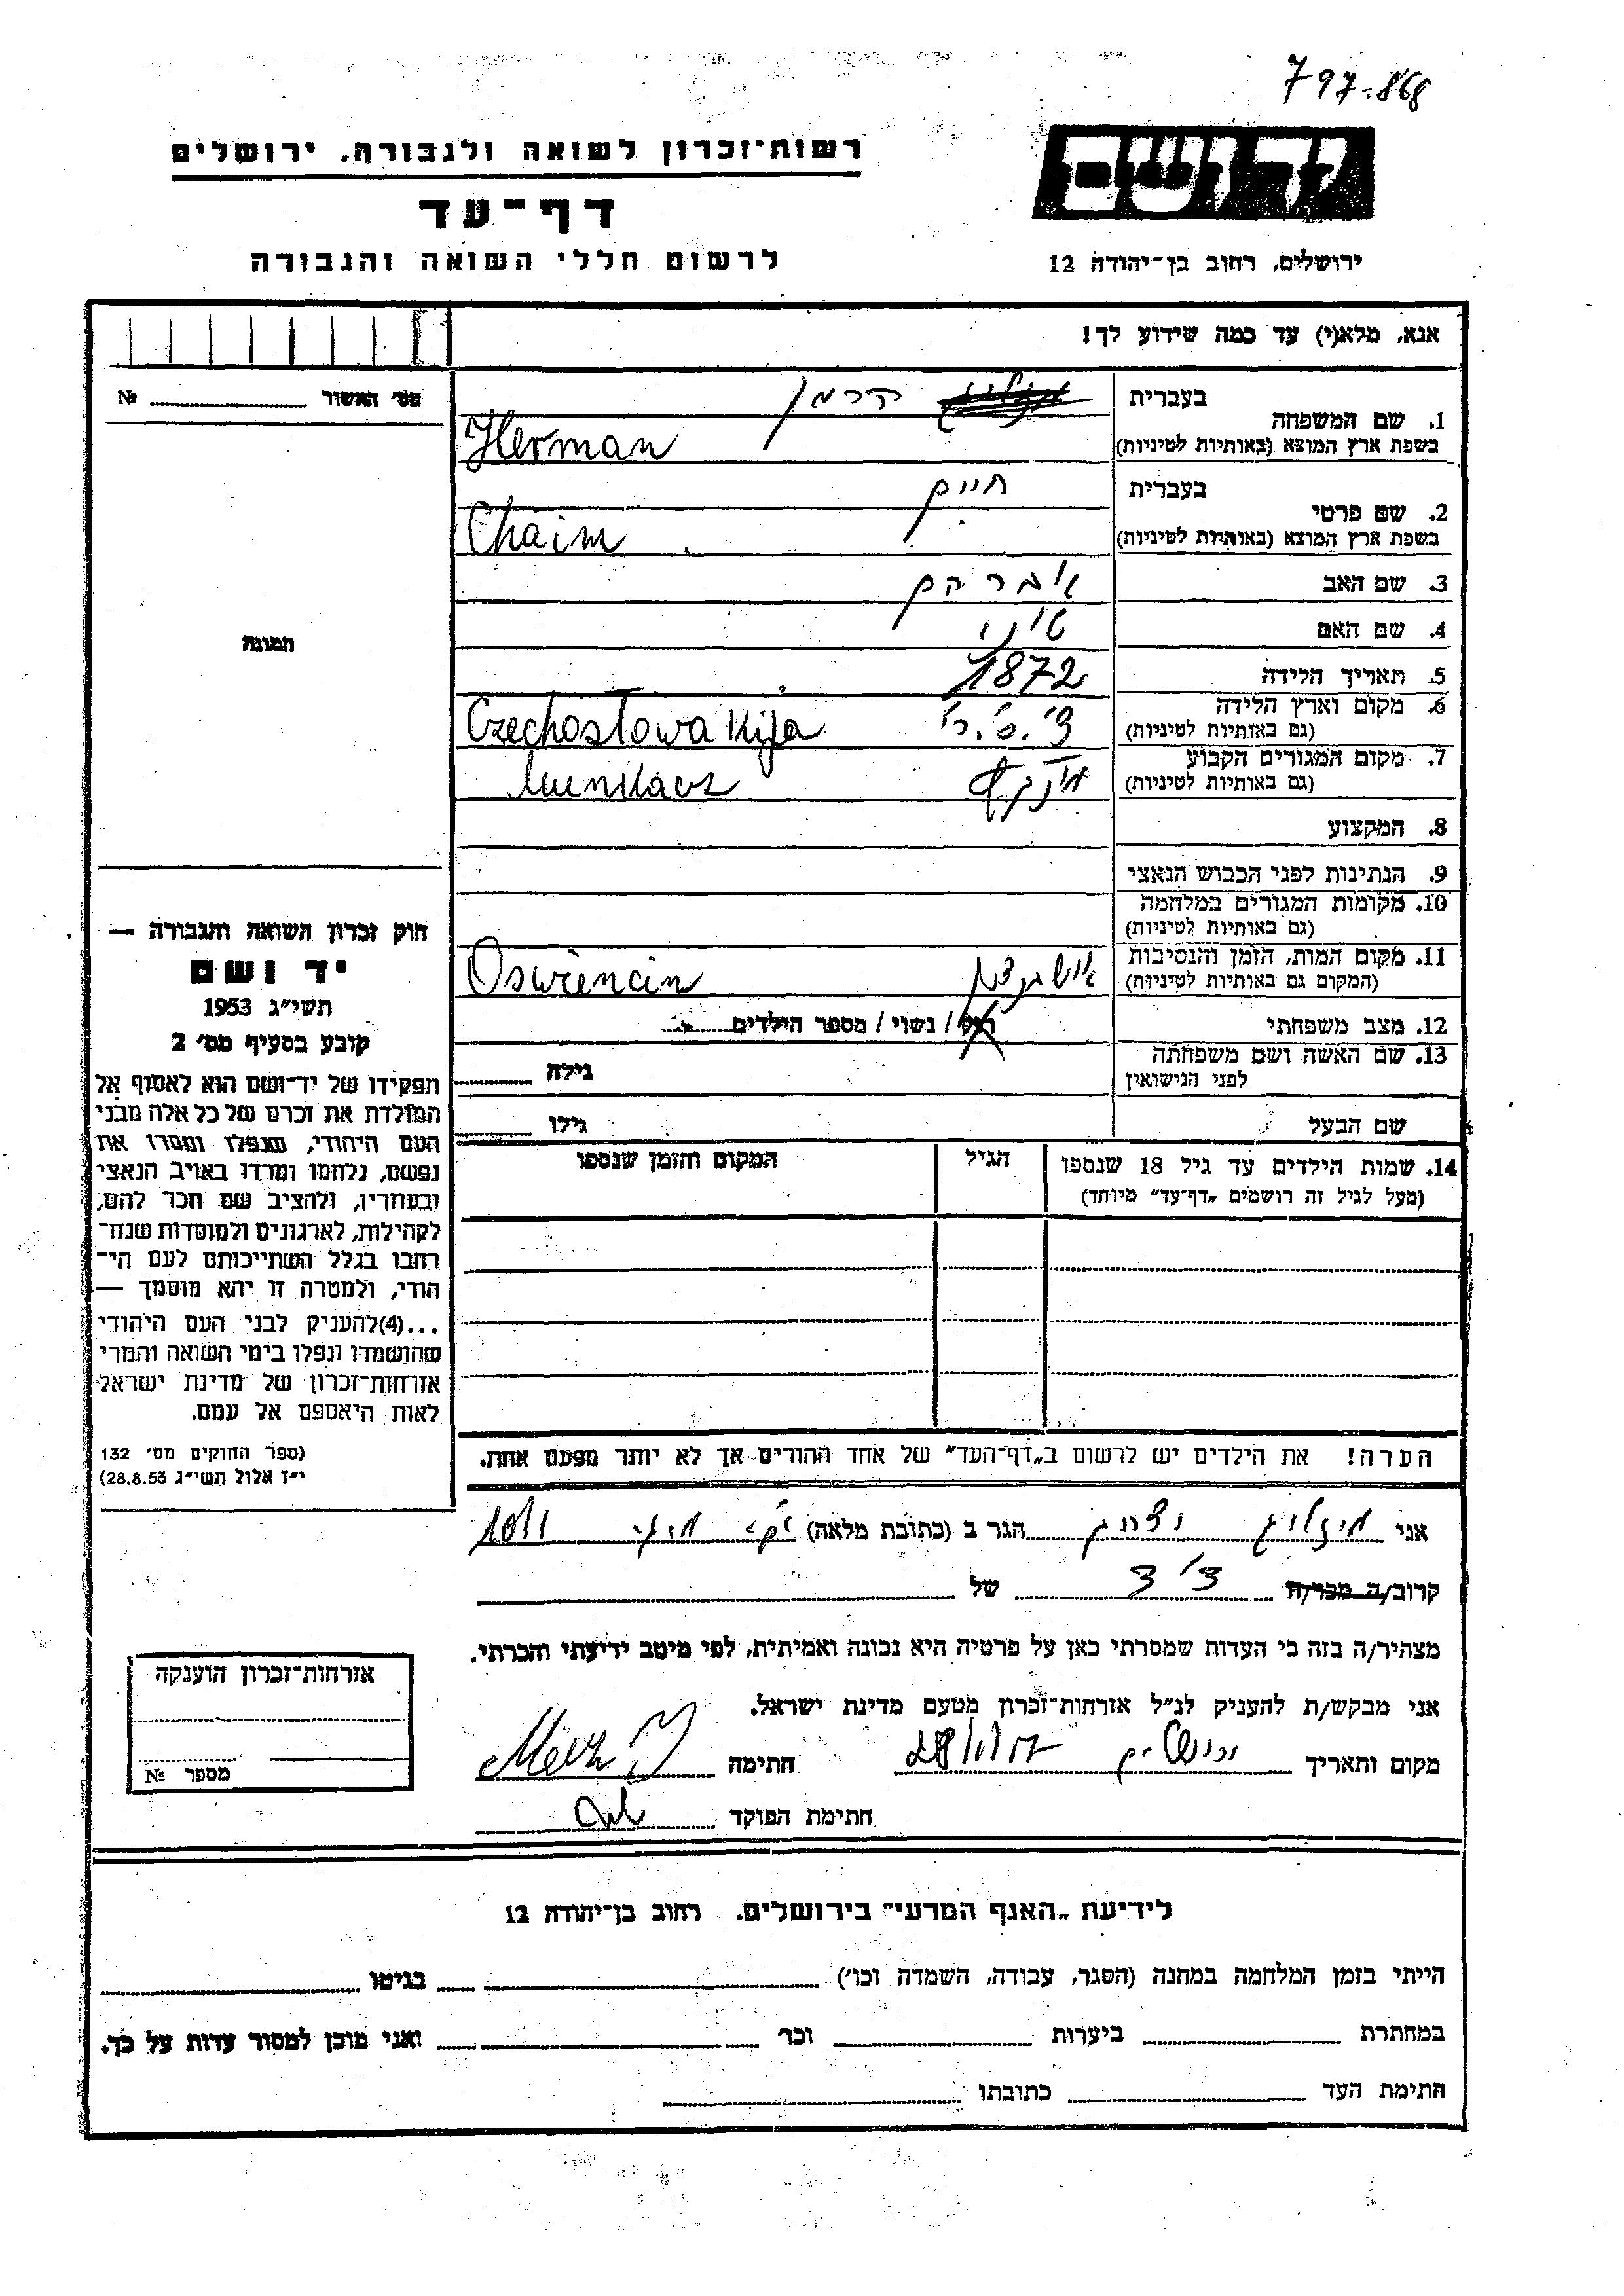 797-868
רשות־זכרון לשואה ולגבורה, ירושלים
ידושם
דף־עד
לרשום חללי השואה והגבורה
ירושלים, רחוב בן־יהודה 12
אנא, מלא(י) עד כמה שידוע לך!
מס׳ האשור № ........
1. שם המשפחה
בעברית הרמן
בשפת ארץ המוצא (באותיות לטיניות) Herman
2. שם פרטי
בעברית חיים
בשפת ארץ המוצא (באותיות לטיניות) Chaim
3. שם האב אברהם
4. שם האם
5. תאריך הלידה 1872
6. מקום וארץ הלידה
(גם באותיות לטיניות) צ׳.ס.ר׳ Czechostowakija
7. מקום המגורים הקבוע
(גם באותיות לטיניות) Munkacz
8. המקצוע
9. הנתינות לפני הכבוש הנאצי
10. מקומות המגורים במלחמה
(גם באותיות לטיניות)
11. מקום המות, הזמן והנסיבות
(המקום גם באותיות לטיניות) Oswiencin
12. מצב משפחתי רווק / נשוי / מספר הילדים ........
13. שם האשה ושם משפחתה
לפני הנישואין גילה ........
שם הבעל גילו ........
14. שמות הילדים עד גיל 18 שנספו
(מעל לגיל זה רושמים „דף־עד״ מיוחד)
הגיל
המקום והזמן שנספו
הערה! את הילדים יש לרשום ב„דף־העד״ של אחד ההורים אך לא יותר מפעם אחת.
תמונה
חוק זכרון השואה והגבורה —
יד ושם
תשי״ג 1953
קובע בסעיף מס׳ 2
תפקידו של יד־ושם הוא לאסוף אל
המולדת את זכרם של כל אלה מבני
העם היהודי, שנפלו ומסרו את
נפשם, נלחמו ומרדו באויב הנאצי
ובעוזריו, ולהציב שם וזכר להם,
לקהילות, לארגונים ולמוסדות שנח־
רבו בגלל השתייכותם לעם הי־
הודי, ולמטרה זו יהא מוסמך —
...(4)להעניק לבני העם היהודי
שהושמדו ונפלו בימי השואה והמרי
אזרחות־זכרון של מדינת ישראל
לאות היאספם אל עמם.
(ספר החוקים מס׳ 132
י״ז אלול תשי״ג 28.8.53)
אני ........ הגר ב (כתובת מלאה) ........
קרוב/ה מכר/ה ........ של ........
מצהיר/ה בזה כי העדות שמסרתי כאן על פרטיה היא נכונה ואמיתית, לפי מיטב ידיעתי והכרתי.
אני מבקש/ת להעניק לנ״ל אזרחות־זכרון מטעם מדינת ישראל.
מקום ותאריך ........ חתימה ........
חתימת הפוקד ........
אזרחות־זכרון הוענקה
מספר №
לידיעת „האגף המדעי״ בירושלים. רחוב בן־יהודה 12
הייתי בזמן המלחמה במחנה (הסגר, עבודה, השמדה וכו׳) ........ בגיטו ........
במחתרת ........ ביערות ........ וכו׳ ........ ואני מוכן למסור עדות על כך.
חתימת העד ........ כתובתו ........